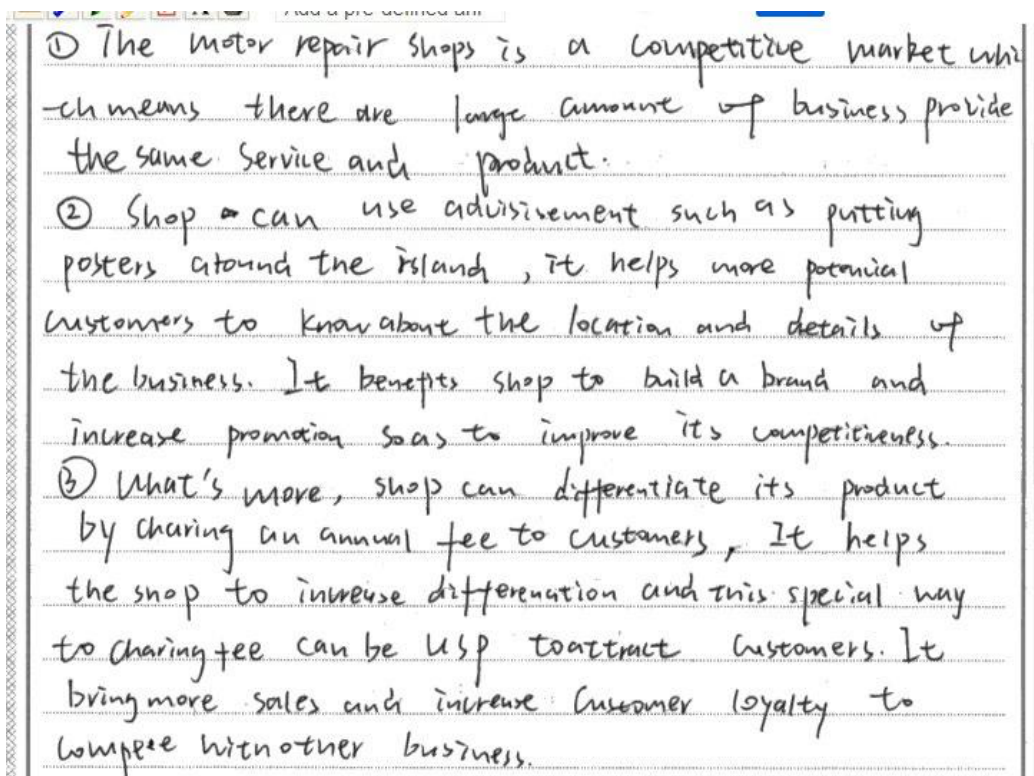 ① The motor repair shops is a competitive market whi
-ch means there are large amount of business provide
the same service and product.
② Shop can use advisisement such as putting
posters around the island, it helps more potencial
customers to know about the location and details of
the business. It benefits shop to build a brand and
increase promotion so as to improve its competitiveness.
③ What's more, shop can differentiate its product
by charing an annual fee to customers, It helps
the shop to increase differenation and this special way
to charing fee can be USP to attract customers. It
bring more sales and increase customer loyalty to
compete with other business.